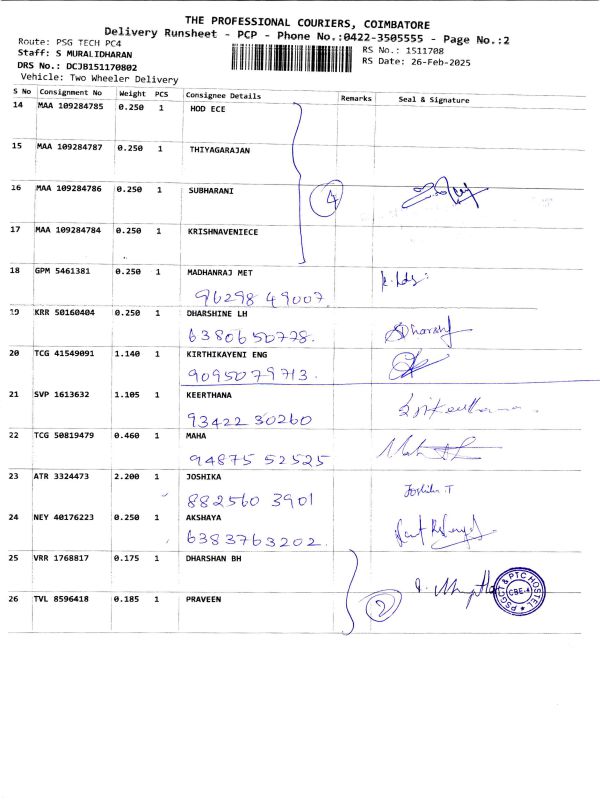 THE PROFESSIONAL COURIERS, COIMBATORE
Delivery Runsheet - PCP - Phone No.:0422-3505555 - Page No.:2
Route: PSG TECH PC4
Staff: S MURALIDHARAN
DRS No.: DCJB151170802
Vehicle: Two Wheeler Delivery
RS No.: 1511708
RS Date: 26-Feb-2025
S No Consignment No Weight PCS Consignee Details Remarks Seal & Signature
14 MAA 109284785 0.250 1 HOD ECE
15 MAA 109284787 0.250 1 THIYAGARAJAN
16 MAA 109284786 0.250 1 SUBHARANI
4
17 MAA 109284784 0.250 1 KRISHNAVENIECE
18 GPM 5461381 0.250 1 MADHANRAJ MET
96298 49007
19 KRR 50160404 0.250 1 DHARSHINE LH
6380650778.
20 TCG 41549091 1.140 1 KIRTHIKAYENI ENG
9095079713.
21 SVP 1613632 1.105 1 KEERTHANA
93422 30260
22 TCG 50819479 0.460 1 MAHA
94875 52525
23 ATR 3324473 2.200 1 JOSHIKA
Joshika T
882560 3901
24 NEY 40176223 0.250 1 AKSHAYA
6383763202.
25 VRR 1768817 0.175 1 DHARSHAN BH
26 TVL 8596418 0.185 1 PRAVEEN
2
PSG & PTC HOSTEL
CBE-4